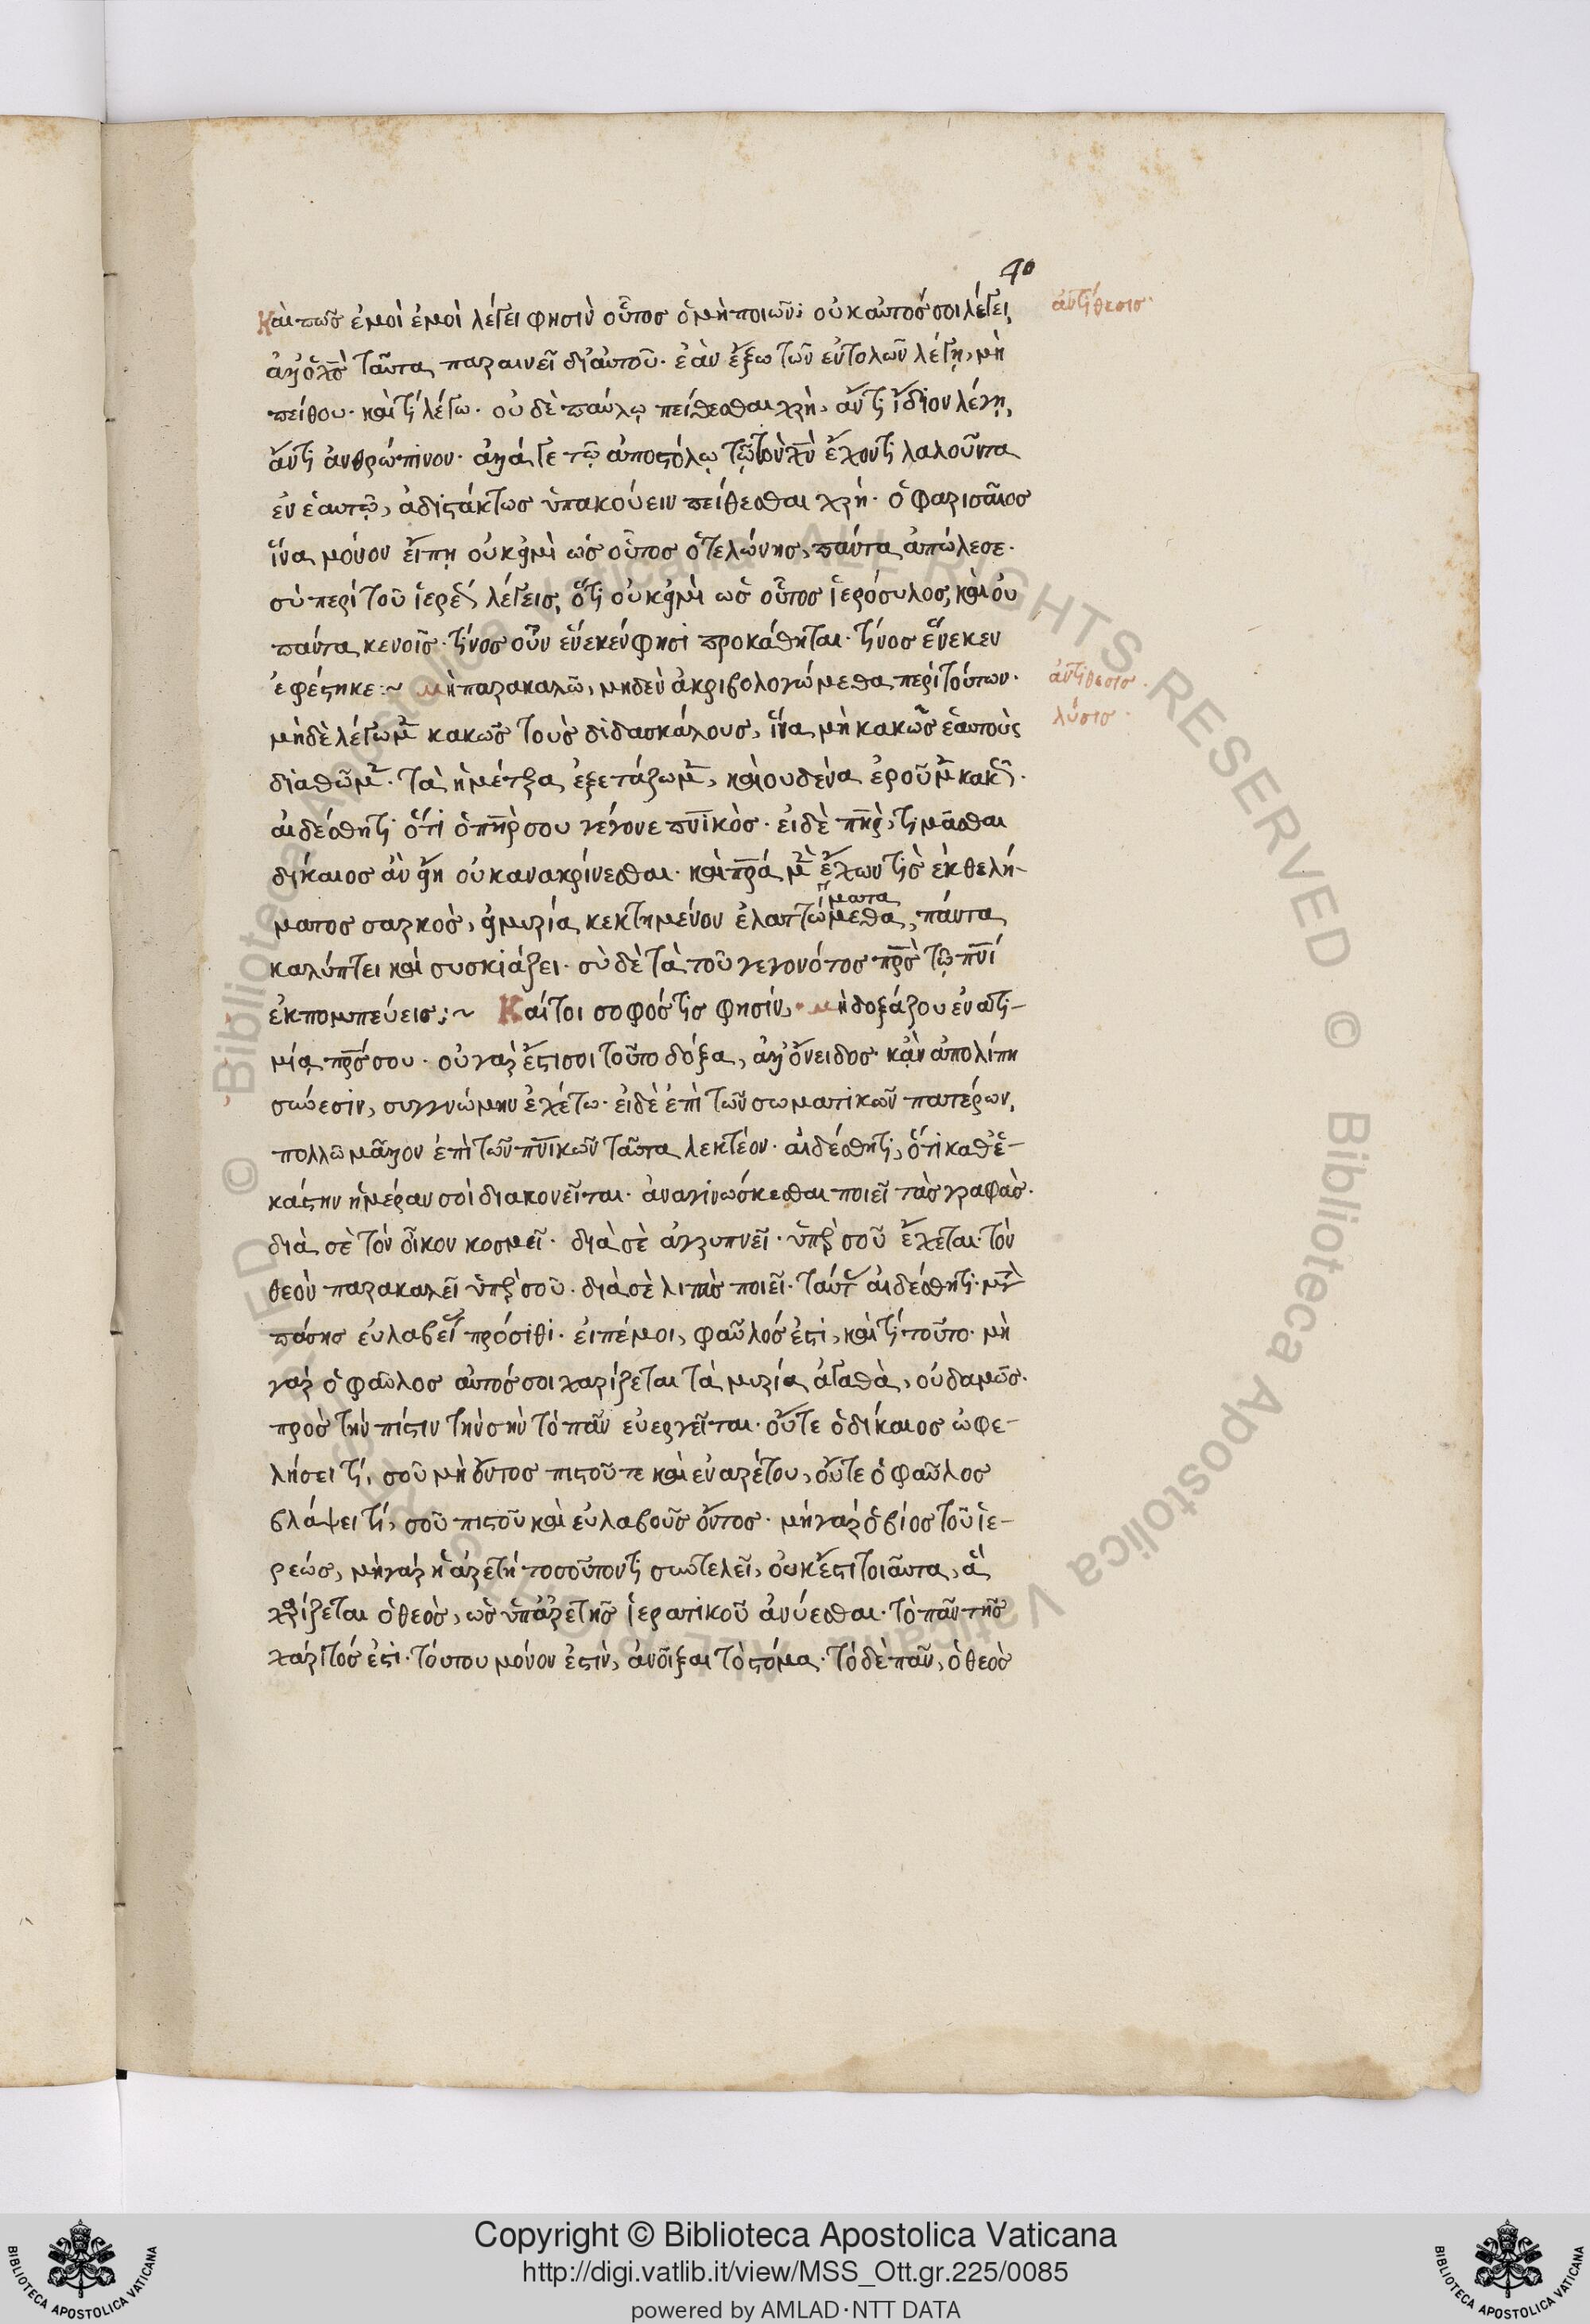 40
Καὶ πῶς ἐμοὶ ἐμοὶ λέγει φησὶν οὗτος ὁ μὴ ποιῶν; οὐκ αὐτός σοι λέγει,
ἀντίθεσις·
ἀλλ' ὁ χς ταῦτα παραινεῖ δι' αὐτοῦ· ἐὰν ἔξω τῶν ἐντολῶν λέγῃ, μὴ
πείθου· καὶ τί λέγω· οὐδὲ παύλῳ πείθεσθαι χρὴ, ἄν τι ἴδιον λέγῃ,
ἄν τι ἀνθρώπινον· ἀλλά γε τῷ ἀποστόλῳ τῷ τὸν χν ἔχοντι λαλοῦντα
ἐν ἑαυτῷ, ἀδιστάκτως ὑπακούειν πείθεσθαι χρή· ὁ φαρισαῖος
ἵνα μόνον εἴπῃ οὐκ εἰμὶ ὡς οὗτος ὁ τελώνης, πάντα ἀπώλεσε·
σὺ περὶ τοῦ ἱερέως λέγεις, ὅτι οὐκ εἰμὶ ὡς οὗτος ἱερόσυλος, καὶ οὐ
πάντα κενοῖς· τίνος οὖν ἕνεκέν φησι προκάθηται· τίνος ἕνεκεν
ἐφέστηκε :~ μὴ παρακαλῶ, μηδὲν ἀκριβολογώμεθα περὶ τούτων·
ἀντίθεσις·
μηδὲ λέγωμεν κακῶς τοὺς διδασκάλους, ἵνα μὴ κακῶς ἑαυτοὺς
λύσις·
διαθῶμεν· τὰ ἡμέτερα ἐξετάζωμεν, καὶ ουδένα ἐροῦμεν κακῶς·
αἰδέσθητι ὅτι ὁ πηρ σου γέγονε πνικὸς· εἰ δὲ πηρ, τιμᾶσθαι
δίκαιος ἂν εἴη οὐκ ἀνακρίνεσθαι· καὶ πρα μὲν ἔχων τὶς ἐκ θελή-
ματος σαρκὸς, μυρία κεκτημένον ἐλαττώματα, πάντα
καλύπτει καὶ συσκιάζει· σὺ δὲ τὰ τοῦ γεγονότος πρς τῷ πνι
ἐκπομπεύεις :~ Καίτοι σοφός τις φησίν, μὴ δοξάζου ἐν ἀτι-
μίᾳ πρς σου· οὐ γάρ ἐστι σοι τοῦτο δόξα, ἀλλ' ὄνειδος· κἂν ἀπολίπῃ
σύνεσιν, συγγνώμην ἐχέτω· εἰ δὲ ἐπὶ τῶν σωματικῶν πατέρων,
πολλῶ μᾶλλον ἐπὶ τῶν πνικῶν ταῦτα λεκτέον· αἰδέσθητι, ὅτι καθ' ἑ-
κάστην ἡμέραν σοὶ διακονεῖται· ἀναγινώσκεσθαι ποιεῖ τὰς γραφὰς·
διὰ σὲ τὸν οἶκον κοσμεῖ· διὰ σὲ ἀγρυπνεῖ· ὑπὲρ σοῦ εὔχεται· τὸν
θεὸν παρακαλεῖ ὑπὲρ σοῦ· διὰ σὲ λιτὰς ποιεῖ· ταῦτα αἰδέσθητι· μετὰ
πάσης εὐλαβείας πρόσιθι· εἰπέ μοι, φαῦλός ἐστι, καὶ τί τοῦτο· μὴ
γὰρ ὁ φαῦλος αὐτός σοι χαρίζεται τὰ μυρία ἀγαθὰ, οὐδαμῶς·
πρὸς τὴν πίστιν τὴν σὴν τὸ πᾶν εὐεργεῖται· οὔτε ὁ δίκαιος ὠφε-
λήσει τί, σοῦ μὴ ὄντος πιστοῦ τε καὶ ἐναρέτου, οὔτε ὁ φαῦλος
βλάψει τί, σοῦ πιστοῦ καὶ εὐλαβοῦς ὄντος· μὴ γὰρ ὁ βίος τοῦ ἱε-
ρέως, μὴ γὰρ ἡ ἀρετὴ τοσοῦτόν τι συντελεῖ, οὐκ ἔστι τοιαῦτα, ἃ
χαρίζεται ὁ θεὸς, ὡς ὑπ' ἀρετῆς ἱερατικοῦ ἀνύεσθαι· τὸ πᾶν τῆς
χάριτός ἐστι· τούτου μόνον ἐστὶν, ἀνοῖξαι τὸ στόμα· τὸ δὲ πᾶν, ὁ θεὸς
© Biblioteca Apostolica Vaticana ALL RIGHTS RESERVED © Biblioteca Apostolica Vaticana
Copyright © Biblioteca Apostolica Vaticana
http://digi.vatlib.it/view/MSS_Ott.gr.225/0085
powered by AMLAD·NTT DATA
BIBLIOTECA APOSTOLICA VATICANA
BIBLIOTECA APOSTOLICA VATICANA